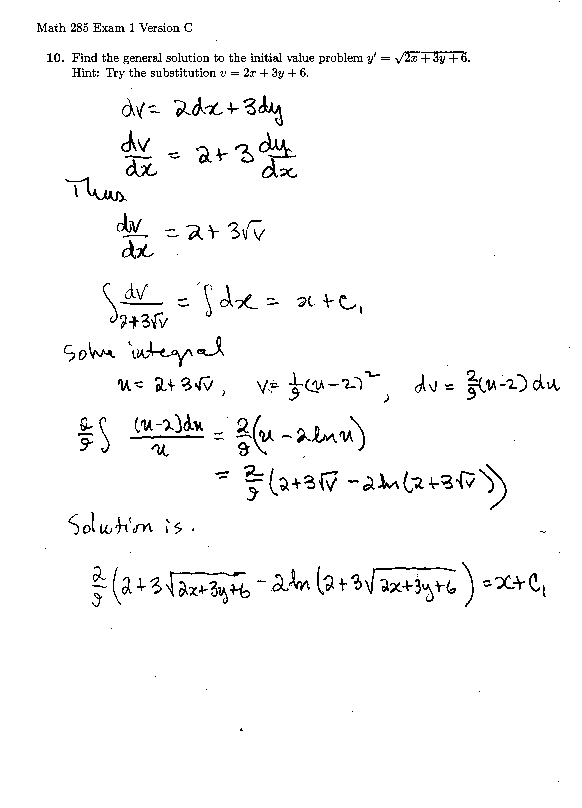 Math 285 Exam 1 Version C
10. Find the general solution to the initial value problem y′ = √(2x + 3y + 6).
Hint: Try the substitution v = 2x + 3y + 6.
dv = 2dx + 3dy
dv/dx = 2 + 3 dy/dx
Thus
dv/dx = 2 + 3√v
∫ dv/(2+3√v) = ∫ dx = x + c₁
Solve integral
u = 2 + 3√v , v = 1/9 (u-2)² , dv = 2/9 (u-2) du
2/9 ∫ (u-2)du/u = 2/9 (u - 2 ln u)
= 2/9 (2+3√v - 2 ln(2+3√v))
Solution is.
2/9 (2+3√(2x+3y+6) - 2 ln (2+3√(2x+3y+6)) = x + C₁